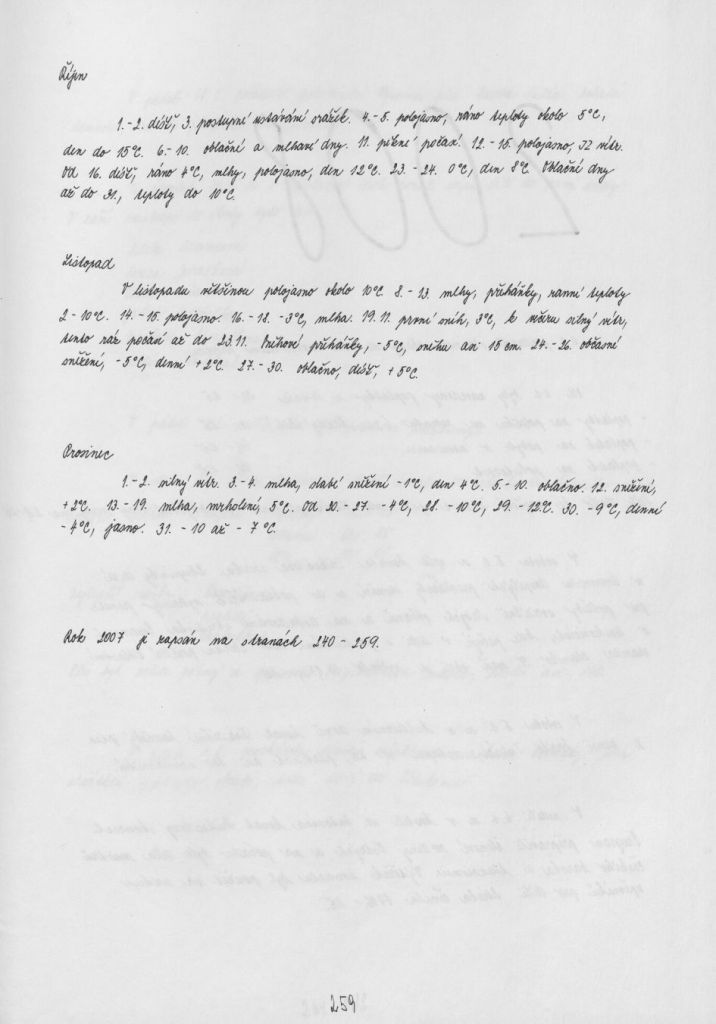 Říjen
1.-2. déšť, 3. postupné ustávání srážek. 4.-5. polojasno, ráno teploty okolo 5°C,
den do 15°C. 6.-10. oblačné a mlhavé dny. 11. pěkné počasí. 12.-15. polojasno, JZ vítr.
Od 16. déšť, ráno 4°C, mlhy, polojasno, den 12°C. 23.-24. 0°C, den 8°C. Oblačné dny
až do 31., teploty do 10°C.
Listopad
V listopadu většinou polojasno okolo 10°C. 8.-13. mlhy, přeháňky, ranní teploty
2-10°C. 14.-15. polojasno. 16.-18. -3°C, mlha. 19.11. první sníh, 3°C, k večeru silný vítr,
tento ráz počasí až do 23.11. Sněhové přeháňky, -5°C, sněhu asi 15 cm. 24.-26. občasné
sněžení, -5°C, denní +2°C. 27.-30. oblačno, déšť, +5°C.
Prosinec
1.-2. silný vítr. 3.-4. mlha, slabé sněžení -1°C, den 4°C. 5.-10. oblačno. 12. sněžení,
+2°C. 13.-19. mlha, mrholení, 5°C. Od 20.-27. -4°C, 28. -10°C, 29. -12°C. 30. -9°C, denní
-4°C, jasno. 31. -10 až -7°C.
Rok 2007 je zapsán na stranách 240-259.
259